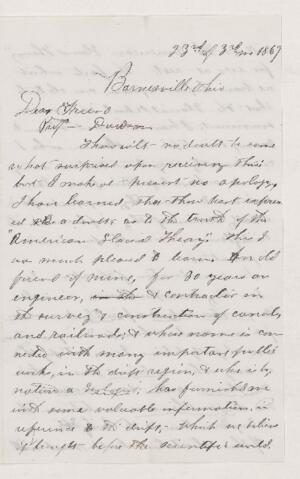 23rd of 3rd mo 1869
Barnesville Ohio
Dear Friend
Prof — Dawson
Thou wilt no doubt be some
what surprised upon receiving this;
but I make at present no apology.
I have learned, that thou hast expressed
doubts as to the truth of the
"American Glacial Theory" this I
am much pleased to learn. An old
friend of mine, for 30 years an
engineer, & contractor in
the survey & construction of canals
and railroads; & whose name is con
nected with many important public
works, in the drift region, & who is by
nature a Geologist, has furnished me
with some valuable information, in
reference to the drift, — which we believe
if brought before the scientific world.